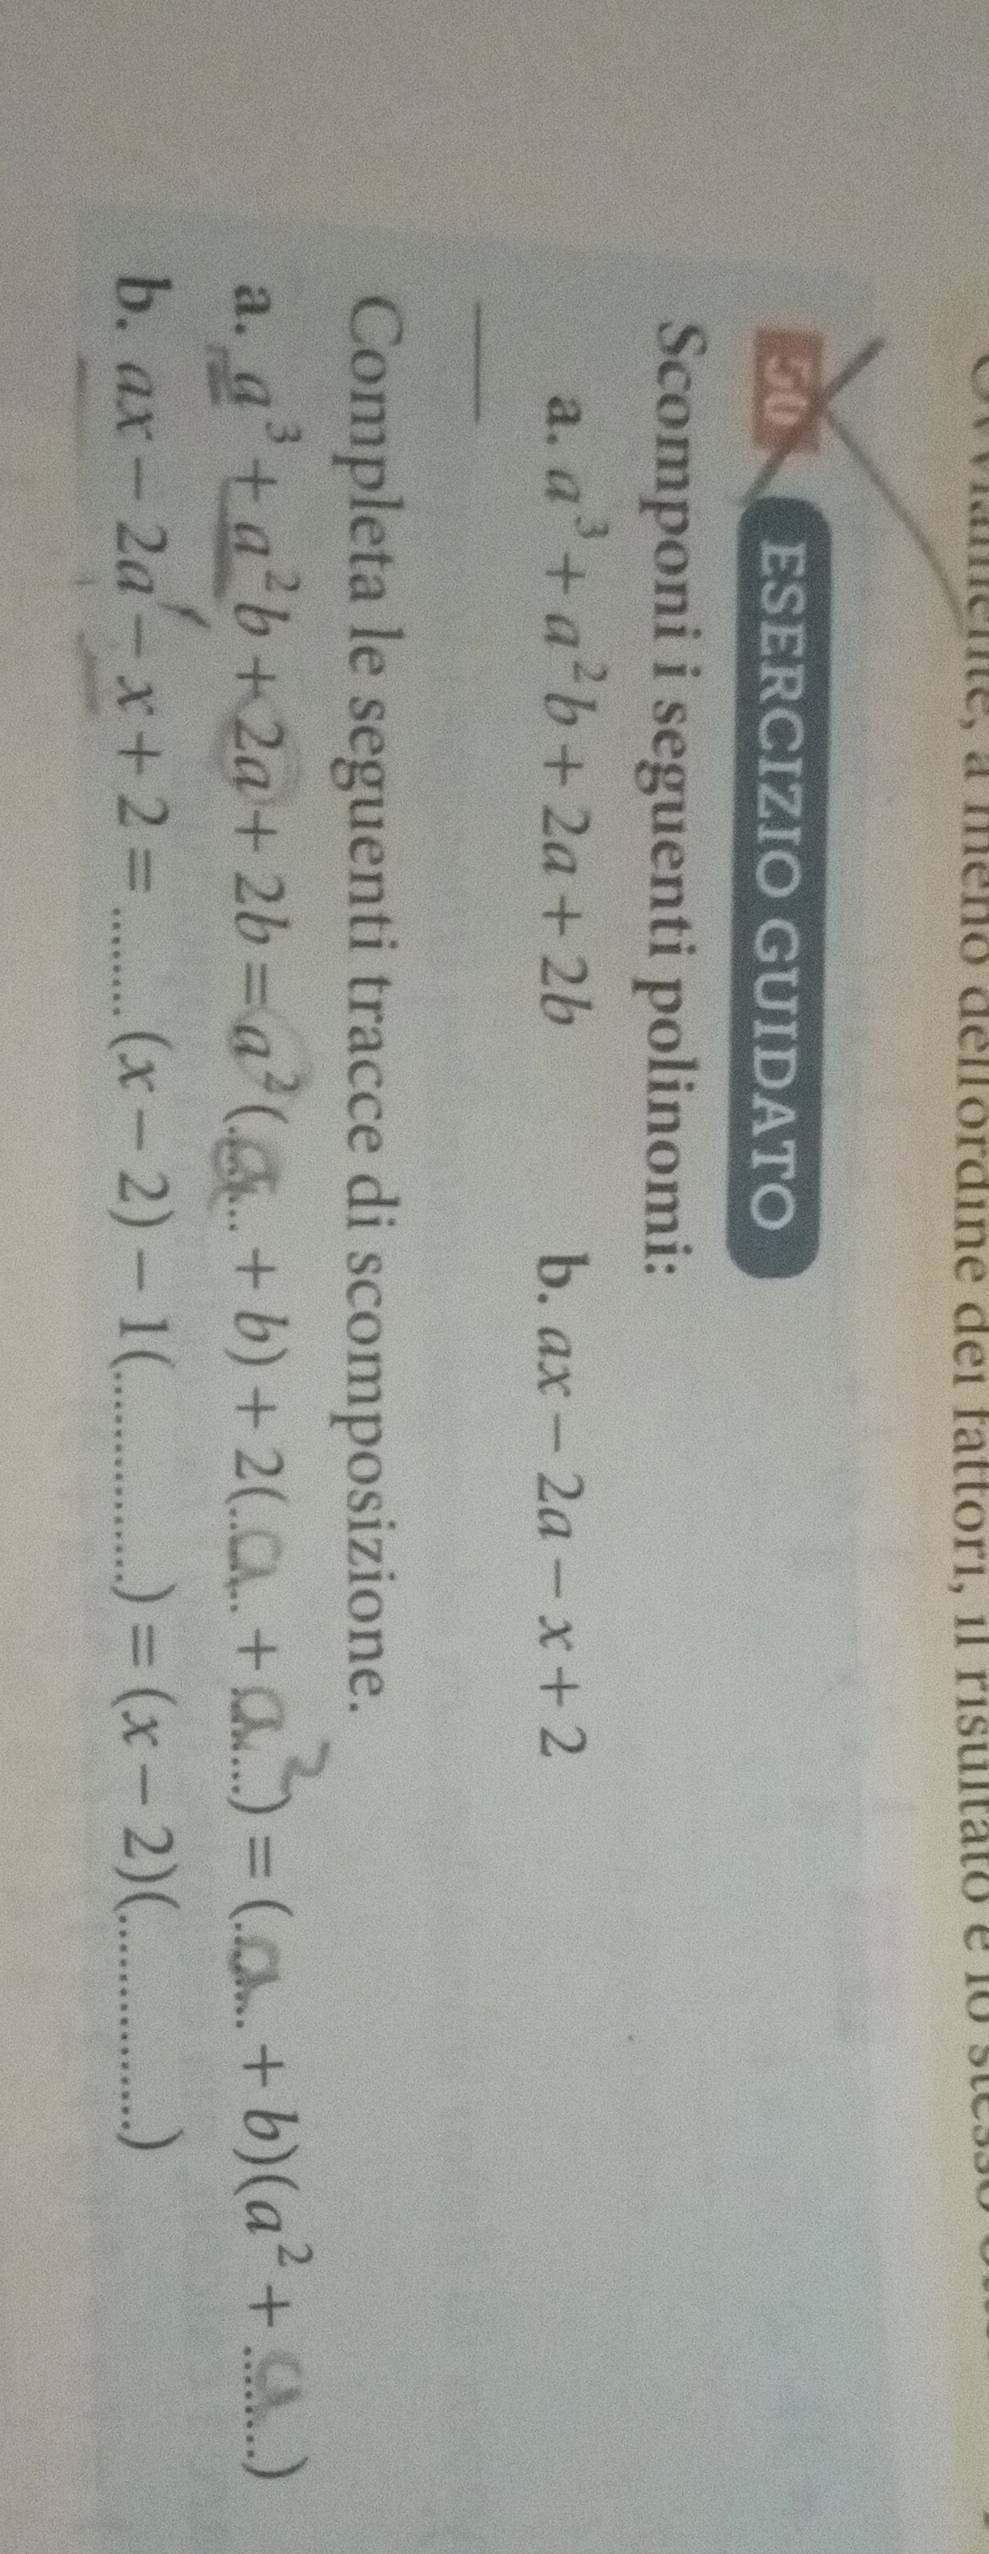 Ovviamente, a meno dell'ordine dei fattori, il risultato è lo stesso
50 ESERCIZIO GUIDATO
Scomponi i seguenti polinomi:
a. a³ + a²b + 2a + 2b b. ax − 2a − x + 2
Completa le seguenti tracce di scomposizione.
a. a³ + a²b + 2a + 2b = a²(..a... + b) + 2(..a.. + a²...) = (..a.. + b)(a² + ..a...)
b. ax − 2a − x + 2 = ....... (x − 2) − 1(...............) = (x − 2)(...............)